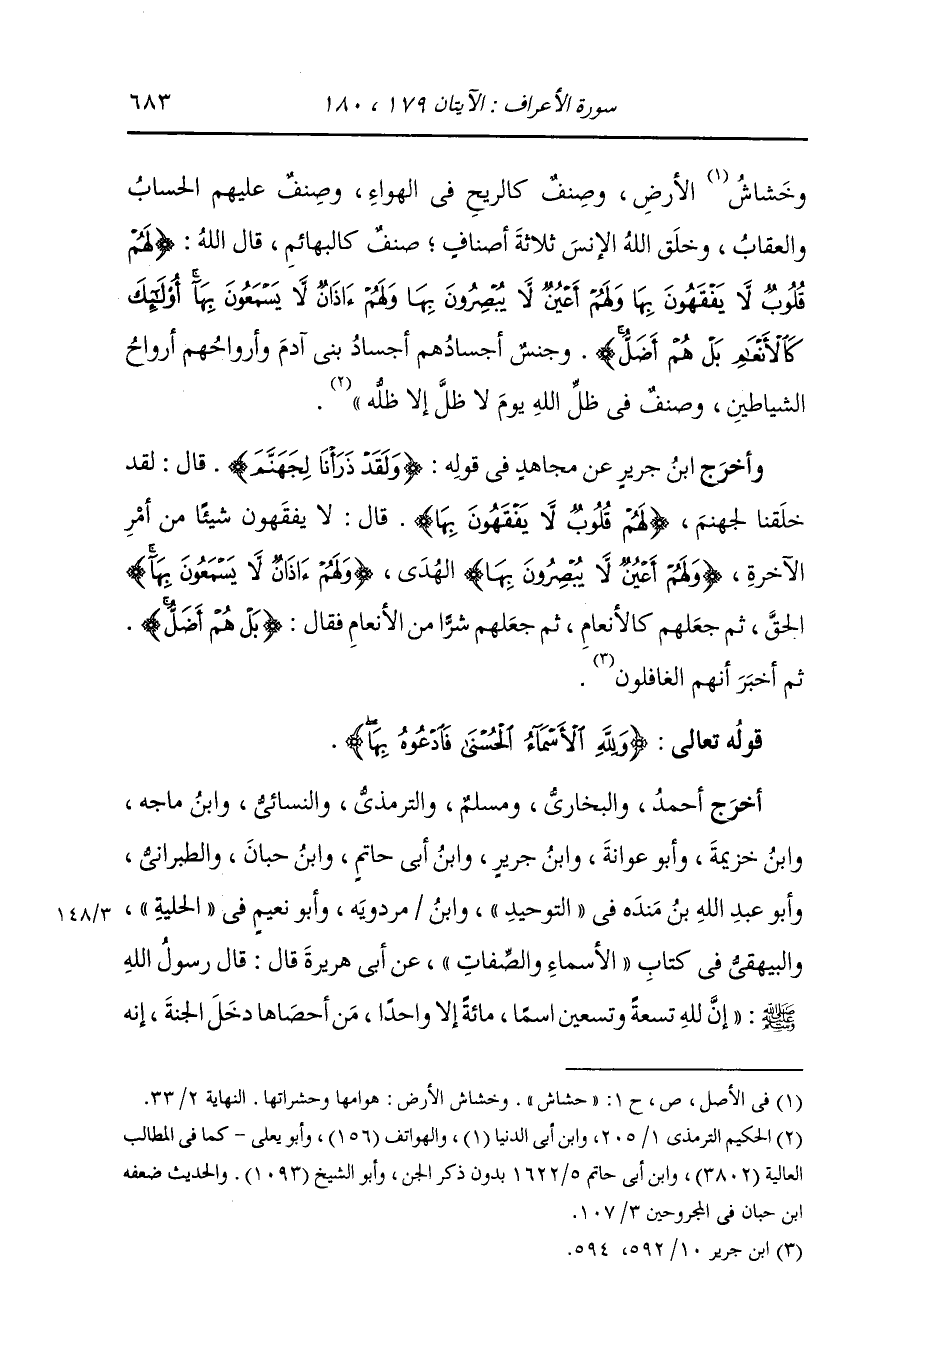 سورة الأعراف : الآيتان ١٧٩ ، ١٨٠ ٦٨٣
وخَشاشُ(١) الأرضِ ، وصِنفٌ كالريحِ فى الهواءِ ، وصِنفٌ عليهم الحسابُ
والعقابُ ، وخلَق اللهُ الإنسَ ثلاثةَ أصنافٍ ؛ صنفٌ كالبهائمِ ، قال اللهُ : ﴿لَهُمْ
قُلُوبٌ لَّا يَفْقَهُونَ بِهَا وَلَهُمْ أَعْيُنٌ لَّا يُبْصِرُونَ بِهَا وَلَهُمْ ءَاذَانٌ لَّا يَسْمَعُونَ بِهَآۚ أُوْلَٰٓئِكَ
كَٱلْأَنْعَٰمِ بَلْ هُمْ أَضَلُّۚ﴾ . وجنسٌ أجسادُهم أجسادُ بنى آدمَ وأرواحُهم أرواحُ
الشياطينِ ، وصنفٌ فى ظلِّ اللهِ يومَ لا ظلَّ إلا ظلُّه »(٢) .
وأخرَج ابنُ جريرٍ عن مجاهدٍ فى قولِه : ﴿وَلَقَدْ ذَرَأْنَا لِجَهَنَّمَ﴾ . قال : لقد
خلَقنا لجهنمَ ، ﴿لَهُمْ قُلُوبٌ لَّا يَفْقَهُونَ بِهَا﴾ . قال : لا يفقَهون شيئًا من أمْرِ
الآخرةِ ، ﴿وَلَهُمْ أَعْيُنٌ لَّا يُبْصِرُونَ بِهَا﴾ الهُدَى ، ﴿وَلَهُمْ ءَاذَانٌ لَّا يَسْمَعُونَ بِهَآۚ﴾
الحقَّ ، ثم جعَلهم كالأنعامِ ، ثم جعَلهم شرًّا من الأنعامِ فقال : ﴿بَلْ هُمْ أَضَلُّۚ﴾ .
ثم أخبَرَ أنهم الغافلون(٣) .
قولُه تعالى : ﴿وَلِلَّهِ ٱلْأَسْمَآءُ ٱلْحُسْنَىٰ فَٱدْعُوهُ بِهَاۖ﴾ .
أخرَج أحمدُ ، والبخارىُّ ، ومسلمٌ ، والترمذىُّ ، والنسائىُّ ، وابنُ ماجه ،
وابنُ خزيمةَ ، وأبو عوانةَ ، وابنُ جريرٍ ، وابنُ أبى حاتمٍ ، وابنُ حبانَ ، والطبرانىُّ ،
وأبو عبدِ اللهِ بنُ مَندَه فى « التوحيدِ » ، وابنُ / مردويَه ، وأبو نعيمٍ فى « الحليةِ » ، ١٤٨/٣
والبيهقىُّ فى كتابِ « الأسماءِ والصِّفاتِ » ، عن أبى هريرةَ قال : قال رسولُ اللهِ
ﷺ : « إنَّ للهِ تسعةً وتسعين اسمًا ، مائةً إلا واحدًا ، مَن أحصَاها دخَلَ الجنةَ ، إنه
(١) فى الأصل ، ص ، ح ١ : « حشاش » . وخشاش الأرض : هوامها وحشراتها . النهاية ٢/ ٣٣.
(٢) الحكيم الترمذى ١/ ٢٠٥، وابن أبى الدنيا (١) ، والهواتف (١٥٦) ، وأبو يعلى – كما فى المطالب
العالية (٣٨٠٢) ، وابن أبى حاتم ١٦٢٢/٥ بدون ذكر الجن ، وأبو الشيخ (١٠٩٣) . والحديث ضعفه
ابن حبان فى المجروحين ٣/ ١٠٧.
(٣) ابن جرير ١٠/ ٥٩٢، ٥٩٤.